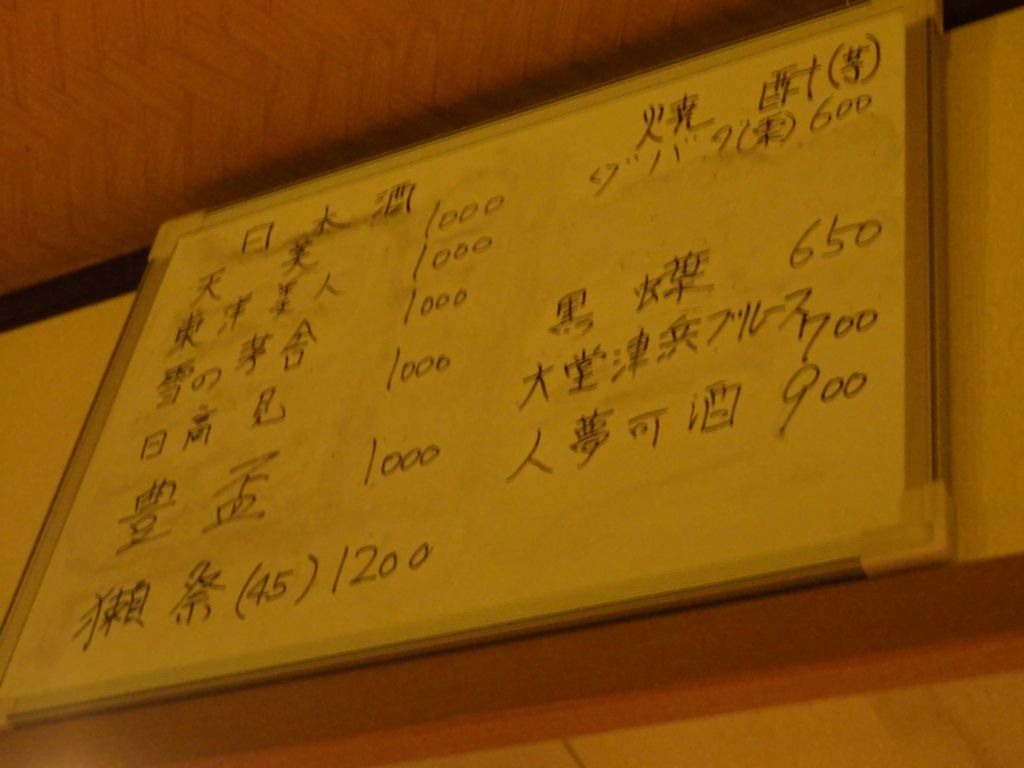 日本酒
天美 1000
東洋美人 1000
雪の茅舎 1000
日高見 1000
豊盃 1000
獺祭(45) 1200
焼酎(芋)
ダバダ(栗) 600
黒 650
大堂津浜ブルース 700
人夢可酒 900